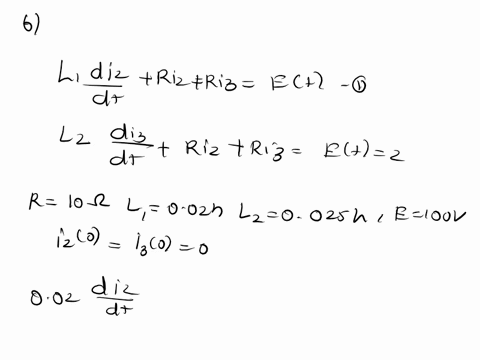 6)
L₁ di₂/dt + Ri₂ + Ri₃ = E(t) - ①
L₂ di₃/dt + Ri₂ + Ri₃ = E(t) = 2
R = 10Ω L₁ = 0.02h L₂ = 0.025h, E = 100V
i₂(0) = i₃(0) = 0
0.02 di₂/dt